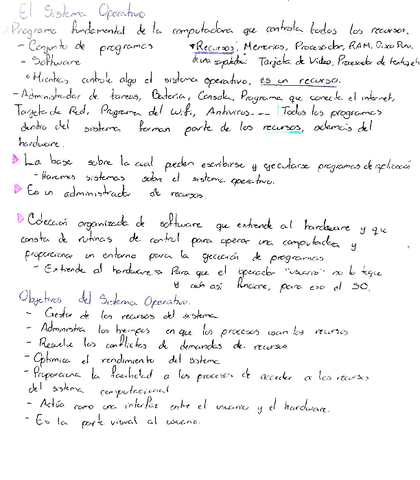 El Sistema Operativo
Programa fundamental de la computadora que controla todos los recursos.
- Conjunto de programas *Recursos: Memorias, Procesador, RAM, Disco Duro.
- Software Tarjeta de Video, Procesador de texto, etc
* Mientras controle algo el sistema operativo, es un recurso.
- Administrador de tareas, Batería, Consola, Programa que conecta el internet,
Tarjeta de Red, Programa del Wifi, Antivirus... Todos los programas
dentro del sistema forman parte de los recursos, además del
hardware.
La base sobre la cual pueden escribirse y ejecutarse programas de aplicación
- Hacemos sistemas sobre el sistema operativo.
Es un administrador de recursos.
Colección organizada de software que extiende al hardware y que
consta de rutinas de control para operar una computadora y
proporcionar un entorno para la ejecución de programas
- Extiende al hardware Para que el operador "usuario" no lo toque
y aún así funcione, para eso el SO.
Objetivos del Sistema Operativo.
- Gestor de los recursos del sistema
- Administra los tiempos en que los procesos usan los recursos
- Resuelve los conflictos de demandas de recursos
- Optimiza el rendimiento del sistema
- Proporciona la facilidad a los procesos de acceder a los recursos
del sistema computacional
- Actúa como una interfaz entre el usuario y el hardware.
- Es la parte visual al usuario.